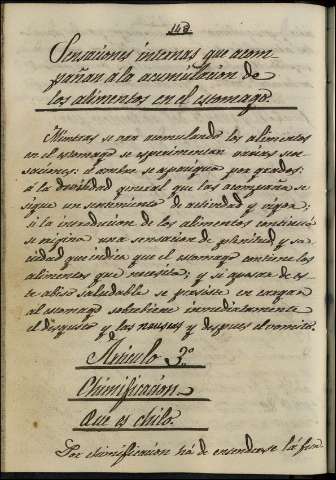 143
Sensaciones internas que acom-
pañan á la acumulacion de
los alimentos en el estomago.
Mintras se van acomulando los alimentos
en el estomago se esperimentan varias sen-
saciones: el ambre se apacigua por grados:
á la devilidad general que las acompaña se
sigue un sentimiento de actividad y vigor;
si la introducion de los alimentos continua
se origina una sensacion de plenitud y sa-
ciedad que indica que el estomago contiene los
alimentos que necesita; y si apesar de es-
te abiso saludable se persiste en cargar
al estomago sobreviene inmediatamente
el disgusto y las nauseas y despues el vomito.
Articulo 3º
Chimificacion.
Que es chilo.
Por chimificacion há de entenderse la fun-